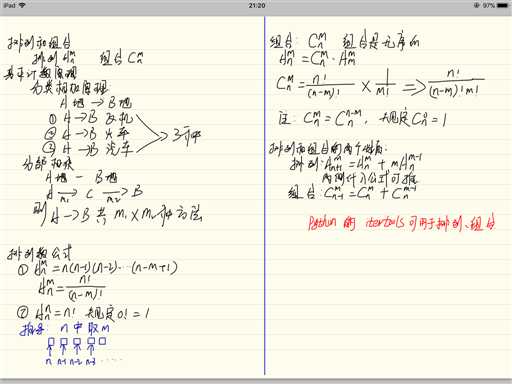 iPad
21:20
97%
排列和组合
排列 Aₙᵐ 组合 Cₙᵐ
基本计数原理
分类相加原理
A地 → B地
① A → B 飞机
② A → B 火车
③ A → B 汽车
3种
分部相乘
A地 - B地
A → C → B
m₁ m₂
则 A → B 共 m₁ × m₂ 种方法
排列数公式
① Aₙᵐ = n(n-1)(n-2)···(n-m+1)
Aₙᵐ = n! / (n-m)!
② Aₙⁿ = n! 规定 0! = 1
n 中取 m
□ □ □ □ □
n n-1 n-2 n-3 ····
组合: Cₙᵐ 组合是无序的
Aₙᵐ = Cₙᵐ · Aₘᵐ
Cₙᵐ = n! / (n-m)! × 1 / m! ⇒ n! / (n-m)! m!
注: Cₙᵐ = Cₙⁿ⁻ᵐ, 规定 Cₙ⁰ = 1
排列和组合的两个性质:
排列: Aₙ₊₁ᵐ = Aₙᵐ + mAₙᵐ⁻¹
两侧代入公式可推
组合: Cₙ₊₁ᵐ = Cₙᵐ + Cₙᵐ⁻¹
Python 的 itertools 可用于排列、组合